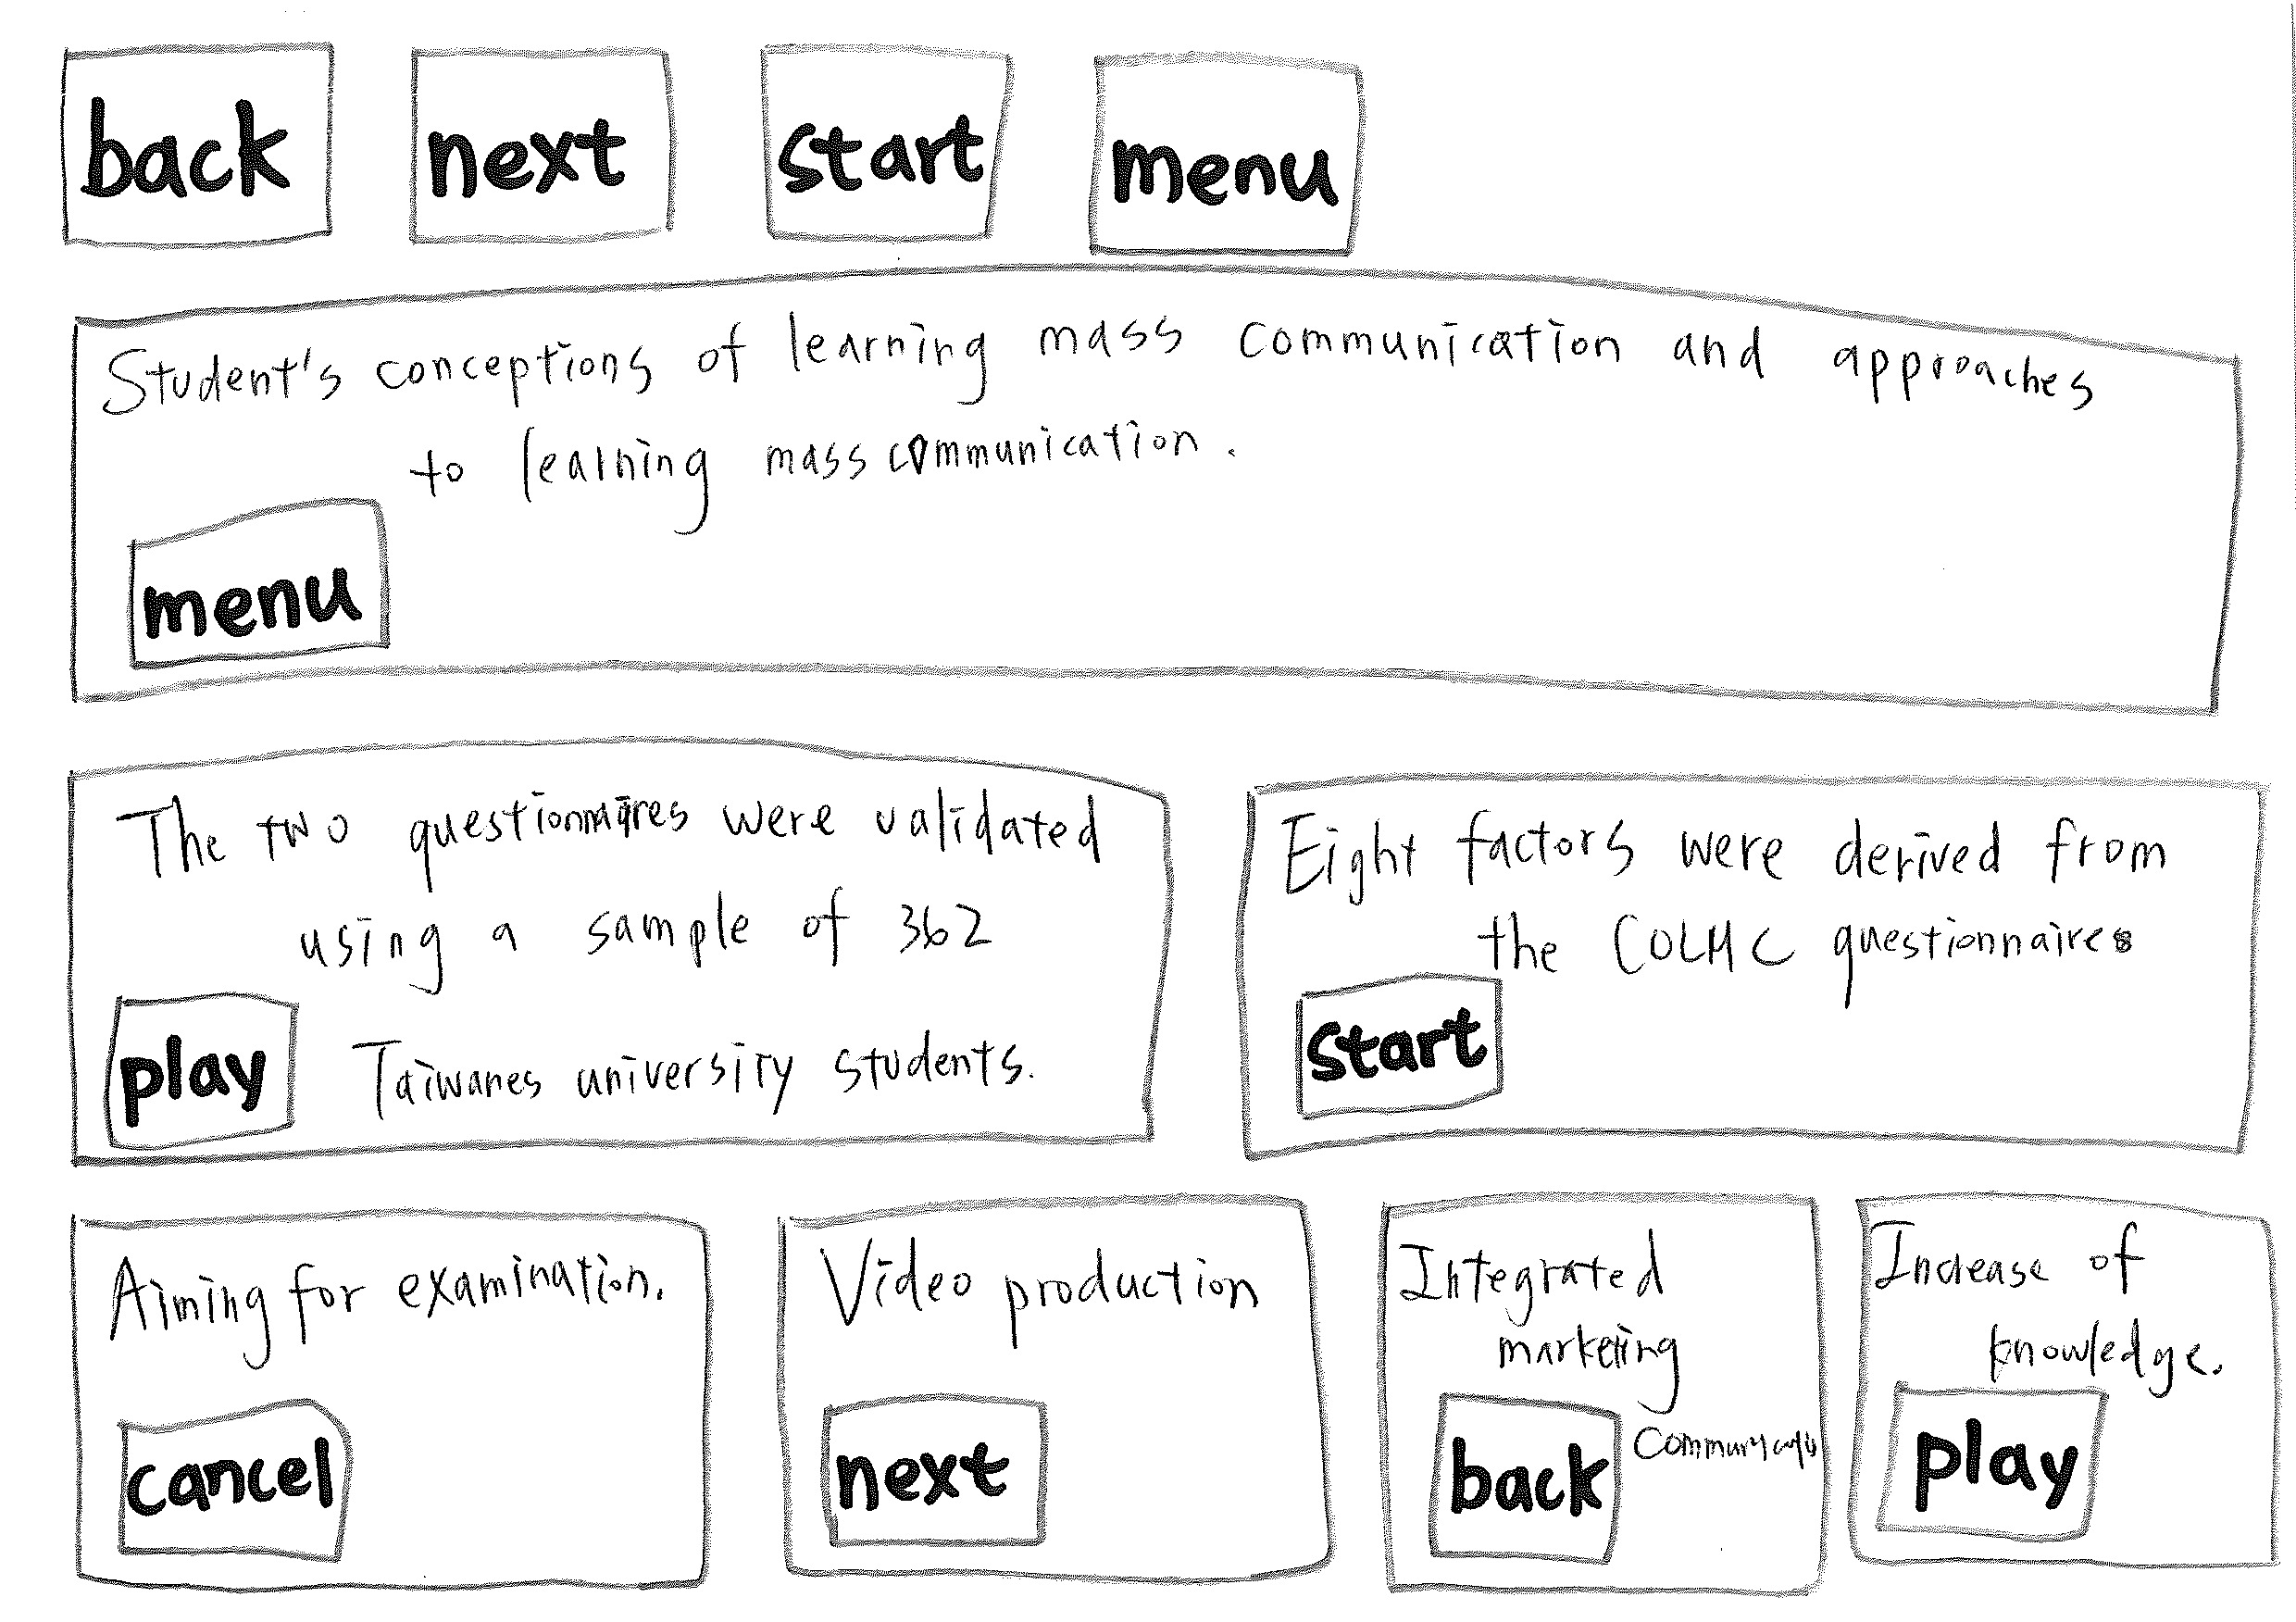 back next start menu
Student's conceptions of learning mass communication and approaches
to learning mass communication.
menu
The two questionnaires were validated
using a sample of 362
play Taiwanes university students.
Eight factors were derived from
the COLMC questionnaires
start
Aiming for examination.
cancel
Video production
next
Integrated
marketing
back
Increase of
knowledge.
play